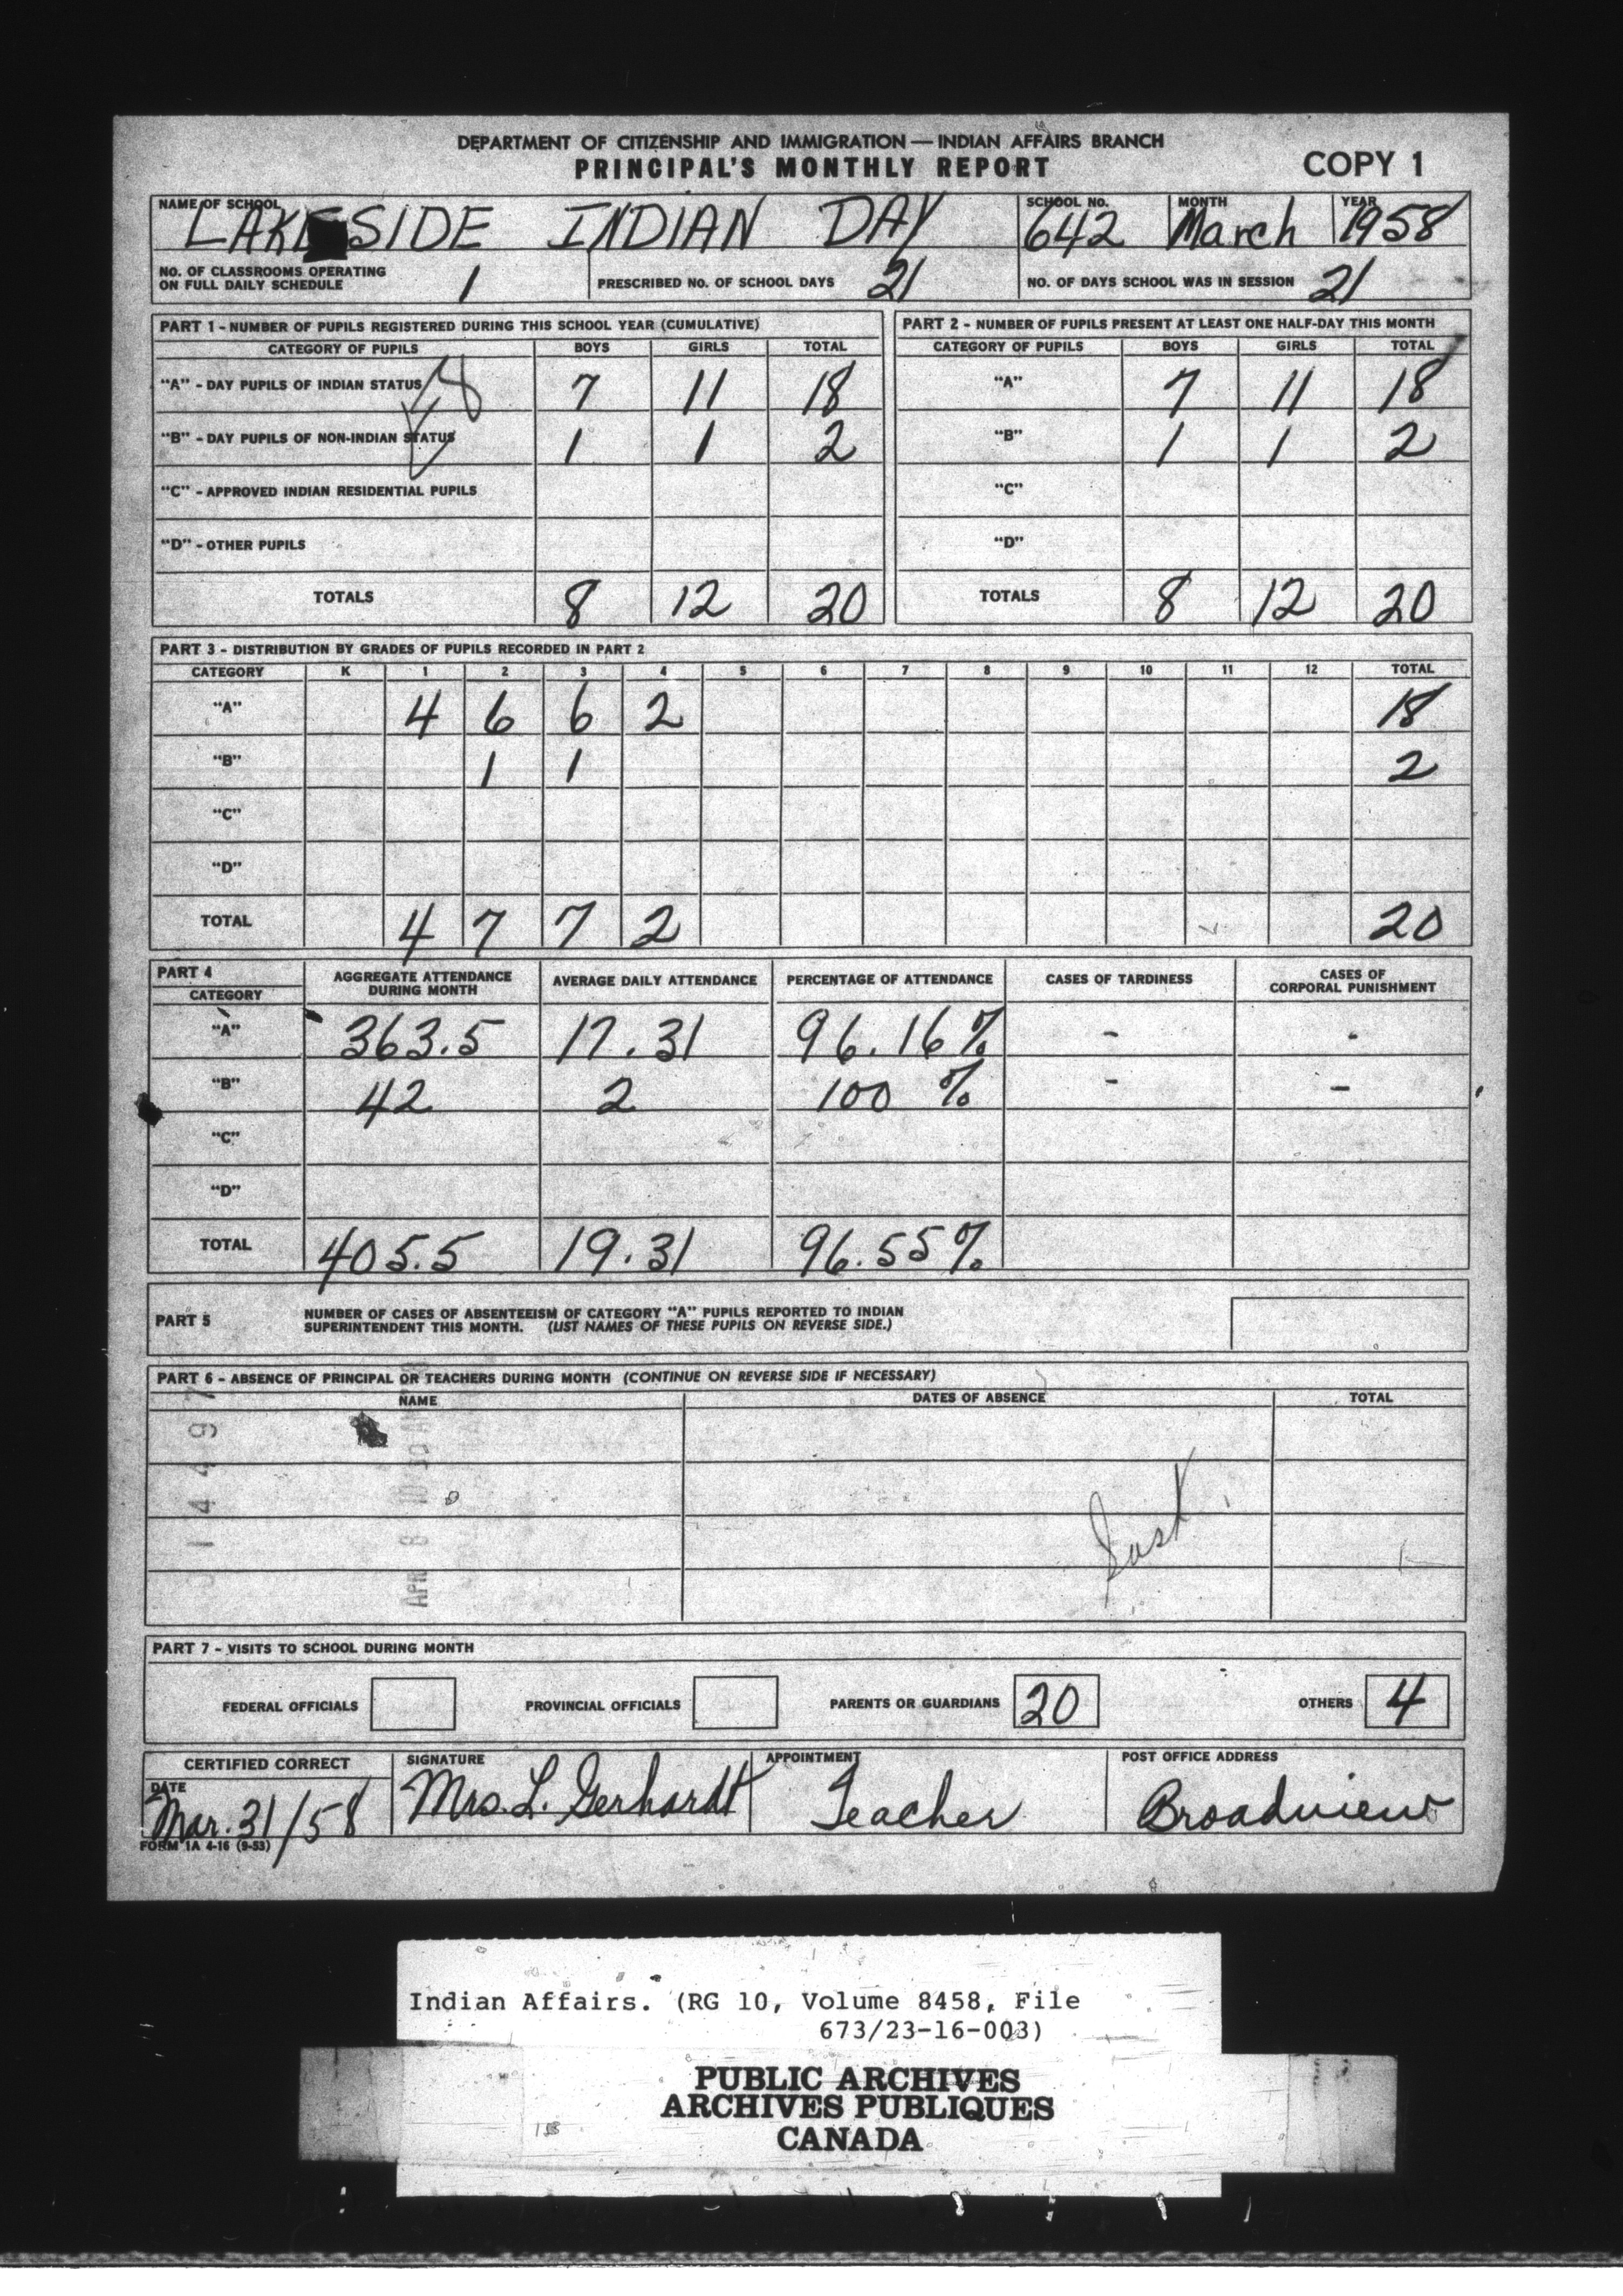 DEPARTMENT OF CITIZENSHIP AND IMMIGRATION — INDIAN AFFAIRS BRANCH
PRINCIPAL'S MONTHLY REPORT COPY 1
NAME OF SCHOOL LAKESIDE INDIAN DAY SCHOOL NO. 642 MONTH March YEAR 1958
NO. OF CLASSROOMS OPERATING
ON FULL DAILY SCHEDULE 1 PRESCRIBED NO. OF SCHOOL DAYS 21 NO. OF DAYS SCHOOL WAS IN SESSION 21
PART 1 - NUMBER OF PUPILS REGISTERED DURING THIS SCHOOL YEAR (CUMULATIVE)
CATEGORY OF PUPILS BOYS GIRLS TOTAL
"A" - DAY PUPILS OF INDIAN STATUS 7 11 18
"B" - DAY PUPILS OF NON-INDIAN STATUS 1 1 2
"C" - APPROVED INDIAN RESIDENTIAL PUPILS
"D" - OTHER PUPILS
TOTALS 8 12 20
PART 2 - NUMBER OF PUPILS PRESENT AT LEAST ONE HALF-DAY THIS MONTH
CATEGORY OF PUPILS BOYS GIRLS TOTAL
"A" 7 11 18
"B" 1 1 2
"C"
"D"
TOTALS 8 12 20
PART 3 - DISTRIBUTION BY GRADES OF PUPILS RECORDED IN PART 2
CATEGORY K 1 2 3 4 5 6 7 8 9 10 11 12 TOTAL
"A" 4 6 6 2 18
"B" 1 1 2
"C"
"D"
TOTAL 4 7 7 2 20
PART 4
CATEGORY AGGREGATE ATTENDANCE DURING MONTH AVERAGE DAILY ATTENDANCE PERCENTAGE OF ATTENDANCE CASES OF TARDINESS CASES OF CORPORAL PUNISHMENT
"A" 363.5 17.31 96.16% - -
"B" 42 2 100 % - -
"C"
"D"
TOTAL 405.5 19.31 96.55%
PART 5 NUMBER OF CASES OF ABSENTEEISM OF CATEGORY "A" PUPILS REPORTED TO INDIAN
SUPERINTENDENT THIS MONTH. (LIST NAMES OF THESE PUPILS ON REVERSE SIDE.)
PART 6 - ABSENCE OF PRINCIPAL OR TEACHERS DURING MONTH (CONTINUE ON REVERSE SIDE IF NECESSARY)
NAME DATES OF ABSENCE TOTAL
Sask
PART 7 - VISITS TO SCHOOL DURING MONTH
FEDERAL OFFICIALS PROVINCIAL OFFICIALS PARENTS OR GUARDIANS 20 OTHERS 4
CERTIFIED CORRECT SIGNATURE APPOINTMENT POST OFFICE ADDRESS
DATE
Mar. 31/58 Mrs. L. Gerhardt Teacher Broadview
FORM 1A 4-16 (9-53)
Indian Affairs. (RG 10, Volume 8458, File
673/23-16-003)
PUBLIC ARCHIVES
ARCHIVES PUBLIQUES
CANADA